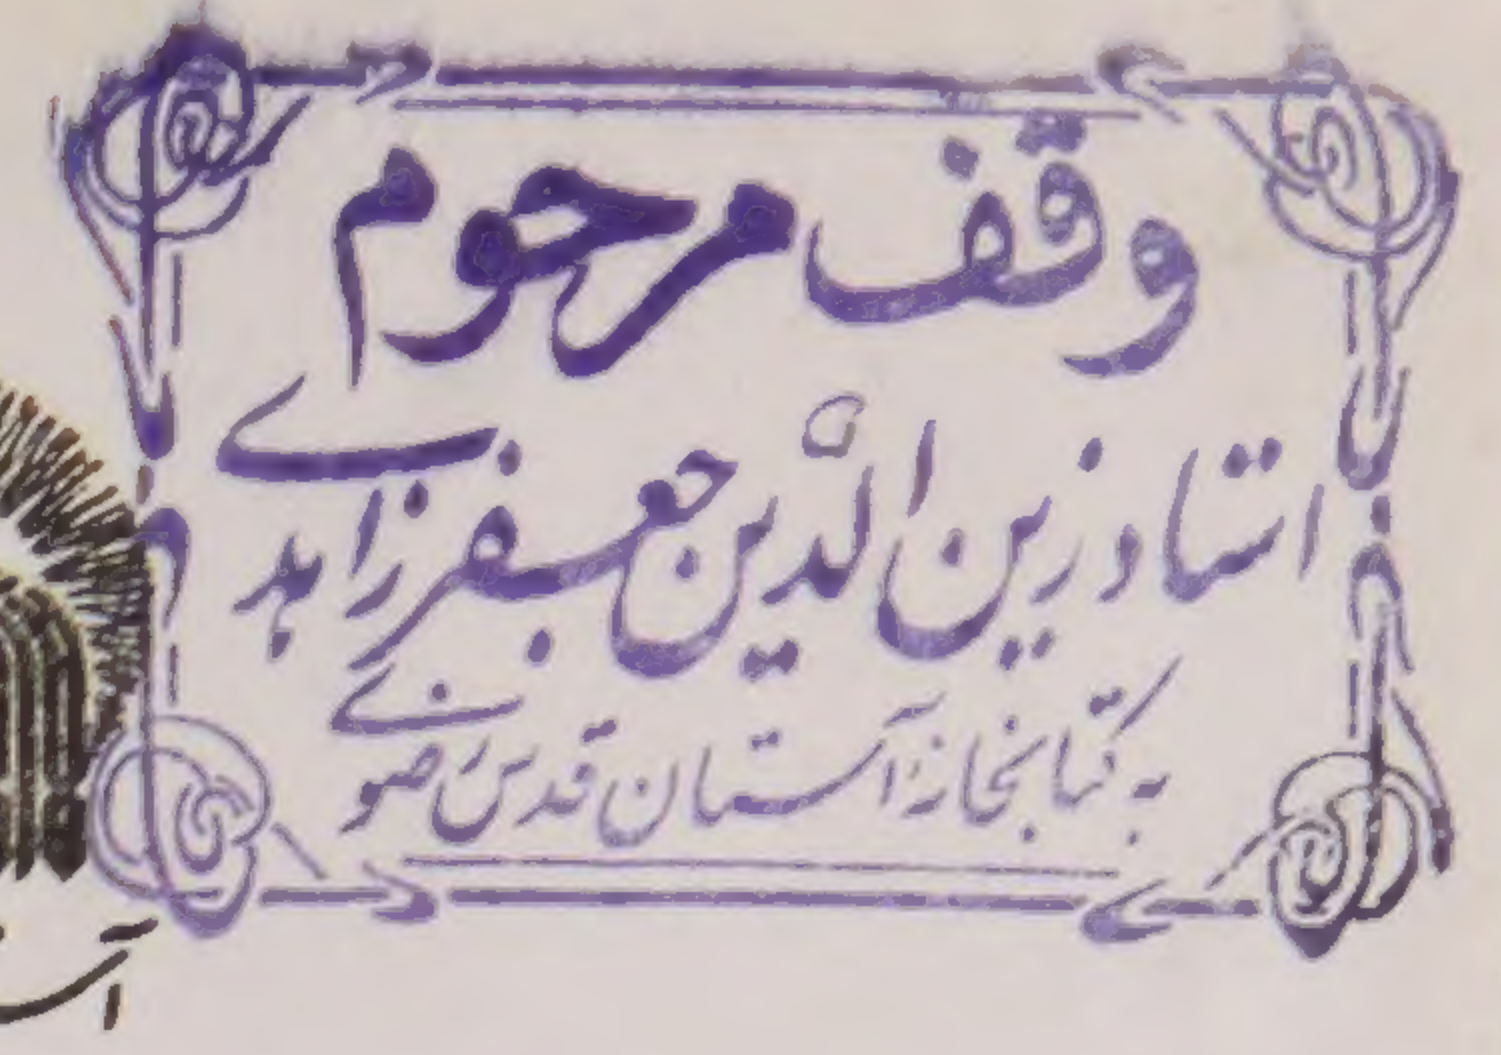 وقف مرحوم
استاد زین الدّین جعفر زاهدی
به کتابخانه آستان قدس رضوی
آ